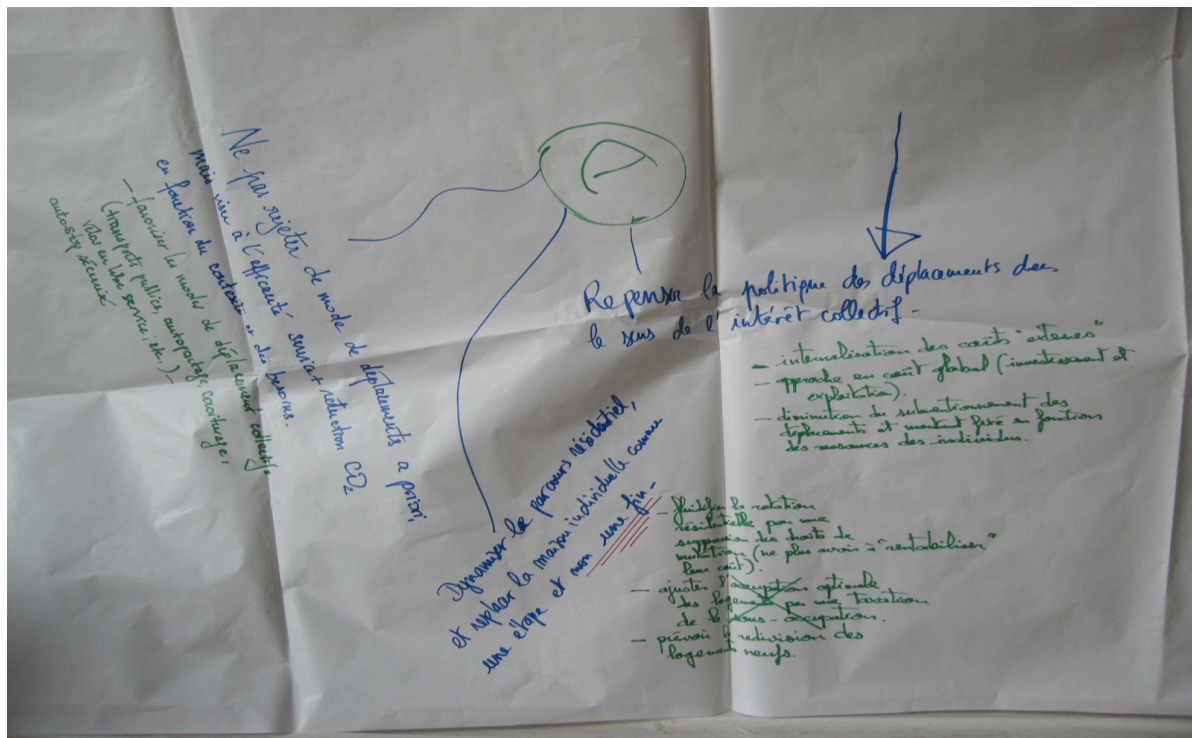 Ne pas rejeter de mode de déplacements a priori,
mais viser à l'efficacité service réduction CO2
en fonction du contexte et des besoins.
— favoriser les modes de déplacement collectifs
(transports publics, autopartage, covoiturage,
vélos en libre service, etc.) —
autostop sécurisé
Repenser la politique des déplacements dans
le sens de l'intérêt collectif -
- internalisation des coûts "externes"
- approche en coût global (investissement et
exploitation).
- diminution du subventionnement des
déplacements et montant fixé en fonction
des ressources des individus.
Dynamiser le parcours résidentiel,
et replacer la maison individuelle comme
une étape et non une fin -
- fluidifier la rotation
résidentielle par une
suppression des droits de
mutation (ne plus avoir à "rentabiliser"
leur coût).
- ajuster l'occupation optimale
des logements par une taxation
de la sous-occupation.
- prévoir la redivision des
logements neufs.